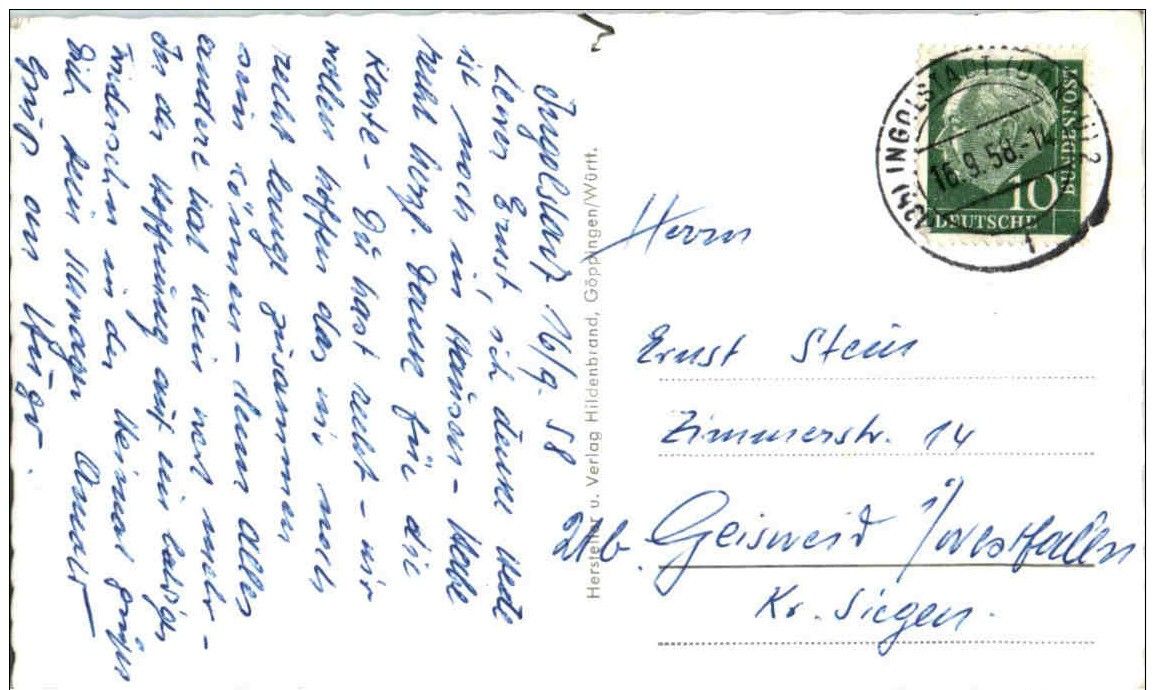 Ingolstadt 16/9. 58
Lieber Ernst, ich denke Hede
ist noch in Hausen - Habe
recht herzl. Dank für die
Karte - Du hast recht - wir
wollen hoffen das wir noch
recht lange zusammen
sein können - denn alles
andere hat kein wert mehr -
In der Hoffnung auf ein baldiges
wiedersehn in der Heimat grüßt
Dich dein Schwager
Gruß an Hugo.
Hersteller u. Verlag Hildenbrand, Göppingen/Württ.
(13a) INGOLSTADT (DONAU) 2
16.9.58.-14
10
DEUTSCHE
BUNDESPOST
Herrn
Ernst Stein
Zimmerstr. 14
21b. Geisweid i/Westfalen
Kr. Siegen.